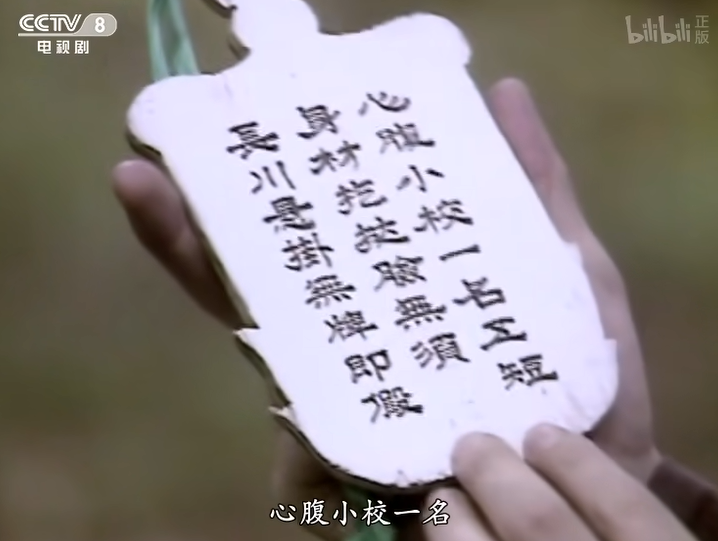 CCTV 8
电视剧
bilibili 正版
心腹小校一名五短
身材扢挞臉無須
長川悬掛無牌即假
心腹小校一名